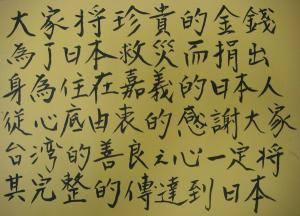 大家将珍貴的金錢
為了日本救災而捐出
身為住在嘉義的日本人
従心底由衷的感謝大家
台湾的善良之心一定将
其完整的傳達到日本